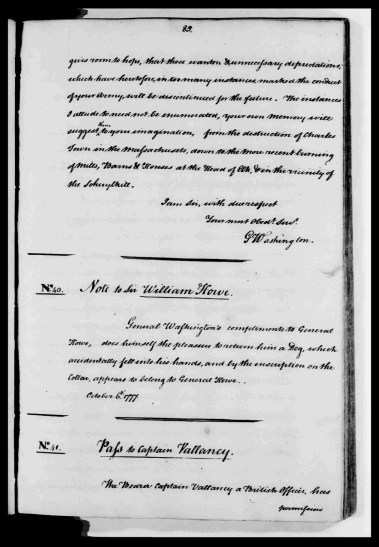 89.
gives room to hope, that those wanton & unnecessary depredations,
which have heretofore, in too many instances, marked the conduct
of your Army, will be discontinued for the future. The instances
I allude to need not be enumerated, Your own memory will
suggest them to your imagination, from the destruction of Charles
Town in the Massachusets, down to the more recent burning
of Mills, Barns & Houses at the Head of Elk, & in the vicinity of
the Schuylkill.
I am Sir, with due respect
Your most Obedt. Servt.
G Washington.
No. 40. Note to Sir William Howe.
General Washington's compliments to General
Howe, does himself the pleasure to return him a Dog, which
accidentally fell into his hands, and by the inscription on the
Collar, appears to belong to General Howe.
October 6th. 1777.
No. 41. Pass to Captain Vallancy.
The Bearer Captain Vallancy a British Officer, has
permission